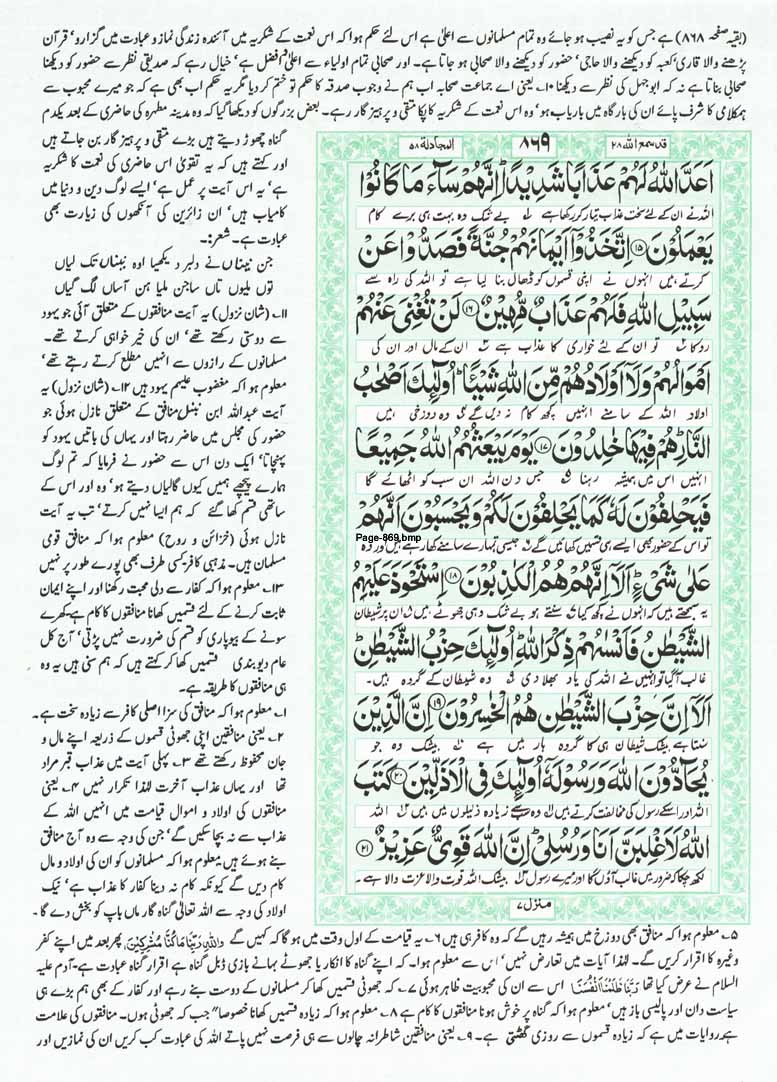 (بقیہ صفحہ ۸۶۸) ہے جس کو یہ نصیب ہو جائے وہ تمام مسلمانوں سے اعلیٰ ہے اس لئے حکم ہوا کہ اس نعمت کے شکریہ میں آئندہ زندگی نماز و عبادت میں گزارو، قرآن
پڑھنے والا قاری، کعبہ کو دیکھنے والا حاجی، حضور کو دیکھنے والا صحابی ہو جاتا ہے۔ اور صحابی تمام اولیاء سے اعلیٰ و افضل ہے، خیال رہے کہ صدیقی نظر سے حضور کو دیکھنا
صحابی بناتا ہے نہ کہ ابوجہل کی نظر سے دیکھنا ۱۰۔ یعنی اے جماعت صحابہ اب ہم نے وجوب صدقہ کا حکم تو ختم کر دیا مگر یہ حکم اب بھی ہے کہ جو میرے محبوب سے
ہمکلامی کا شرف پائے ان کی بارگاہ میں باریاب ہو، وہ اس نعمت کے شکریہ کا پکا متقی و پرہیزگار رہے۔ بعض بزرگوں کو دیکھا گیا کہ وہ مدینہ مطہرہ کی حاضری کے بعد یکدم
گناہ چھوڑ دیتے ہیں بڑے متقی و پرہیزگار بن جاتے ہیں
اور کہتے ہیں کہ یہ تقویٰ اس حاضری کی نعمت کا شکریہ
ہے، یہ اس آیت پر عمل ہے، ایسے لوگ دین و دنیا میں
کامیاب ہیں، ان زائرین کی آنکھوں کی زیارت بھی
عبادت ہے۔ شعر:۔
جن نیناں نے دلبر دیکھیا اوہ نیناں تک لیاں
توں ملیوں تاں ساجن ملیا ہن آساں لگ گیاں
۱۱۔ (شان نزول) یہ آیت منافقوں کے متعلق آئی جو یہود
سے دوستی رکھتے تھے، ان کی خیر خواہی کرتے تھے۔
مسلمانوں کے رازوں سے انہیں مطلع کرتے رہتے تھے،
معلوم ہوا کہ مغضوب علیہم یہود ہیں ۱۲۔ (شان نزول) یہ
آیت عبداللہ ابن نبتل منافق کے متعلق نازل ہوئی جو
حضور کی مجلس میں حاضر رہتا اور یہاں کی باتیں یہود کو
پہنچاتا، ایک دن اس سے حضور نے فرمایا کہ تم لوگ
ہمارے پیچھے ہمیں کیوں گالیاں دیتے ہو، وہ اور اس کے
ساتھی قسم کھا گئے کہ ہم ایسا نہیں کرتے، تب یہ آیت
نازل ہوئی (خزائن و روح) معلوم ہوا کہ منافق قومی
مسلمان ہیں۔ مذہبی کافر کسی طرف بھی پورے طور پر نہیں
۱۳۔ معلوم ہوا کہ کفار سے دلی محبت رکھنا اور اپنے ایمان
ثابت کرنے کے لئے قسمیں کھانا منافقوں کا کام ہے کھرے
سونے کے بیوپاری کو قسم کی ضرورت نہیں پڑتی، آج کل
عام دیوبندی قسمیں کھا کر کہتے ہیں کہ ہم سنی ہیں یہ وہ
ہی منافقوں کا طریقہ ہے۔
۱۔ معلوم ہوا کہ منافق کی سزا اصلی کافر سے زیادہ سخت ہے۔
۲۔ یعنی منافقین اپنی جھوٹی قسموں کے ذریعہ اپنے مال و
جان محفوظ رکھتے تھے ۳۔ پہلی آیت میں عذاب قبر مراد
تھا اور یہاں عذاب آخرت لہٰذا تکرار نہیں ۴۔ یعنی
منافقوں کی اولاد و اموال قیامت میں انہیں اللہ کے
عذاب سے نہ بچا سکیں گے، جن کی وجہ سے وہ آج منافق
بنے ہوئے ہیں معلوم ہوا کہ مسلمانوں کو ان کی اولاد و مال
کام دیں گے کیونکہ کام نہ دینا کفار کا عذاب ہے، نیک
اولاد کی وجہ سے اللہ تعالیٰ گناہ گار ماں باپ کو بخش دے گا۔
قد سمع اللہ ۲۸ ۸۶۹ المجادلۃ ۵۸
اَعَدَّ اللّٰهُ لَهُمْ عَذَابًا شَدِيْدًا ؕ اِنَّهُمْ سَآءَ مَا كَانُوْا
اللہ نے ان کے لئے سخت عذاب تیار کر رکھا ہے بے شک وہ بہت ہی برے کام
يَعْمَلُوْنَ ۝۱۵ اِتَّخَذُوْۤا اَيْمَانَهُمْ جُنَّةً فَصَدُّوْا عَنْ
کرتے ہیں انہوں نے اپنی قسموں کو ڈھال بنا لیا ہے تو اللہ کی راہ سے
سَبِيْلِ اللّٰهِ فَلَهُمْ عَذَابٌ مُّهِيْنٌ ۝۱۶ لَنْ تُغْنِيَ عَنْهُمْ
روکا تو ان کے لئے خواری کا عذاب ہے ان کے مال اور ان کی
اَمْوَالُهُمْ وَلَاۤ اَوْلَادُهُمْ مِّنَ اللّٰهِ شَيْئًا ؕ اُولٰٓئِكَ اَصْحٰبُ
اولاد اللہ کے سامنے انہیں کچھ کام نہ دیں گے وہ دوزخی ہیں
النَّارِ ؕ هُمْ فِيْهَا خٰلِدُوْنَ ۝۱۷ يَوْمَ يَبْعَثُهُمُ اللّٰهُ جَمِيْعًا
انہیں اس میں ہمیشہ رہنا جس دن اللہ ان سب کو اٹھائے گا
فَيَحْلِفُوْنَ لَهٗ كَمَا يَحْلِفُوْنَ لَكُمْ وَيَحْسَبُوْنَ اَنَّهُمْ
Page-869.bmp
تو اس کے حضور بھی ایسے ہی قسمیں کھائیں گے جیسی تمہارے سامنے کھا رہے ہیں اور وہ
عَلٰى شَيْءٍ ؕ اَلَاۤ اِنَّهُمْ هُمُ الْكٰذِبُوْنَ ۝۱۸ اِسْتَحْوَذَ عَلَيْهِمُ
یہ سمجھتے ہیں کہ انہوں نے کچھ کیا سنتے ہو بے شک وہی جھوٹے ہیں ان پر شیطان
الشَّيْطٰنُ فَاَنْسٰىهُمْ ذِكْرَ اللّٰهِ ؕ اُولٰٓئِكَ حِزْبُ الشَّيْطٰنِ ؕ
غالب آ گیا تو انہیں نے اللہ کی یاد بھلا دی وہ شیطان کے گروہ ہیں۔
اَلَاۤ اِنَّ حِزْبَ الشَّيْطٰنِ هُمُ الْخٰسِرُوْنَ ۝۱۹ اِنَّ الَّذِيْنَ
سنتا ہے بیشک شیطان ہی کا گروہ ہار میں ہے بیشک وہ جو
يُحَآدُّوْنَ اللّٰهَ وَرَسُوْلَهٗۤ اُولٰٓئِكَ فِي الْاَذَلِّيْنَ ۝۲۰ كَتَبَ
اللہ اور اسکے رسول کی مخالفت کرتے ہیں وہ سب سے زیادہ ذلیلوں میں ہیں اللہ
اللّٰهُ لَاَغْلِبَنَّ اَنَا وَرُسُلِيْ ؕ اِنَّ اللّٰهَ قَوِيٌّ عَزِيْزٌ ۝۲۱
لکھ چکا کہ ضرور میں غالب آؤں گا اور میرے رسول بیشک اللہ قوت والا عزت والا ہے۔
منزل ۷
۵۔ معلوم ہوا کہ منافق بھی دوزخ میں ہمیشہ رہیں گے کہ وہ کافر ہی ہیں ۶۔ یہ قیامت کے اول وقت میں ہو گا کہ کہیں گے وَاللّٰهِ رَبِّنَا مَا كُنَّا مُشْرِكِيْنَ پھر بعد میں اپنے کفر
وغیرہ کا اقرار کریں گے۔ لہٰذا آیات میں تعارض نہیں، اس سے معلوم ہوا۔ کہ اپنے گناہ کا انکار یا جھوٹے بہانے بازی ڈبل گناہ ہے اقرار گناہ عبادت ہے۔ آدم علیہ
السلام نے عرض کیا تھا رَبَّنَا ظَلَمْنَاۤ اَنْفُسَنَا اس سے ان کی محبوبیت ظاہر ہوئی ۷۔ کہ جھوٹی قسمیں کھا کر مسلمانوں کے دوست بنے رہے اور کفار کے بھی ہم بڑے ہی
سیاست دان اور پالیسی باز ہیں، معلوم ہوا کہ گناہ پر خوش ہونا منافقوں کا کام ہے ۸۔ معلوم ہوا کہ زیادہ قسمیں کھانا خصوصاً جب کہ جھوٹی ہوں۔ منافقوں کی علامت
ہے روایات میں ہے کہ زیادہ قسموں سے روزی گھٹتی ہے۔ ۹۔ یعنی منافقین شاطرانہ چالوں سے ہی فرصت نہیں پاتے اللہ کی عبادت کب کریں ان کی نمازیں اور